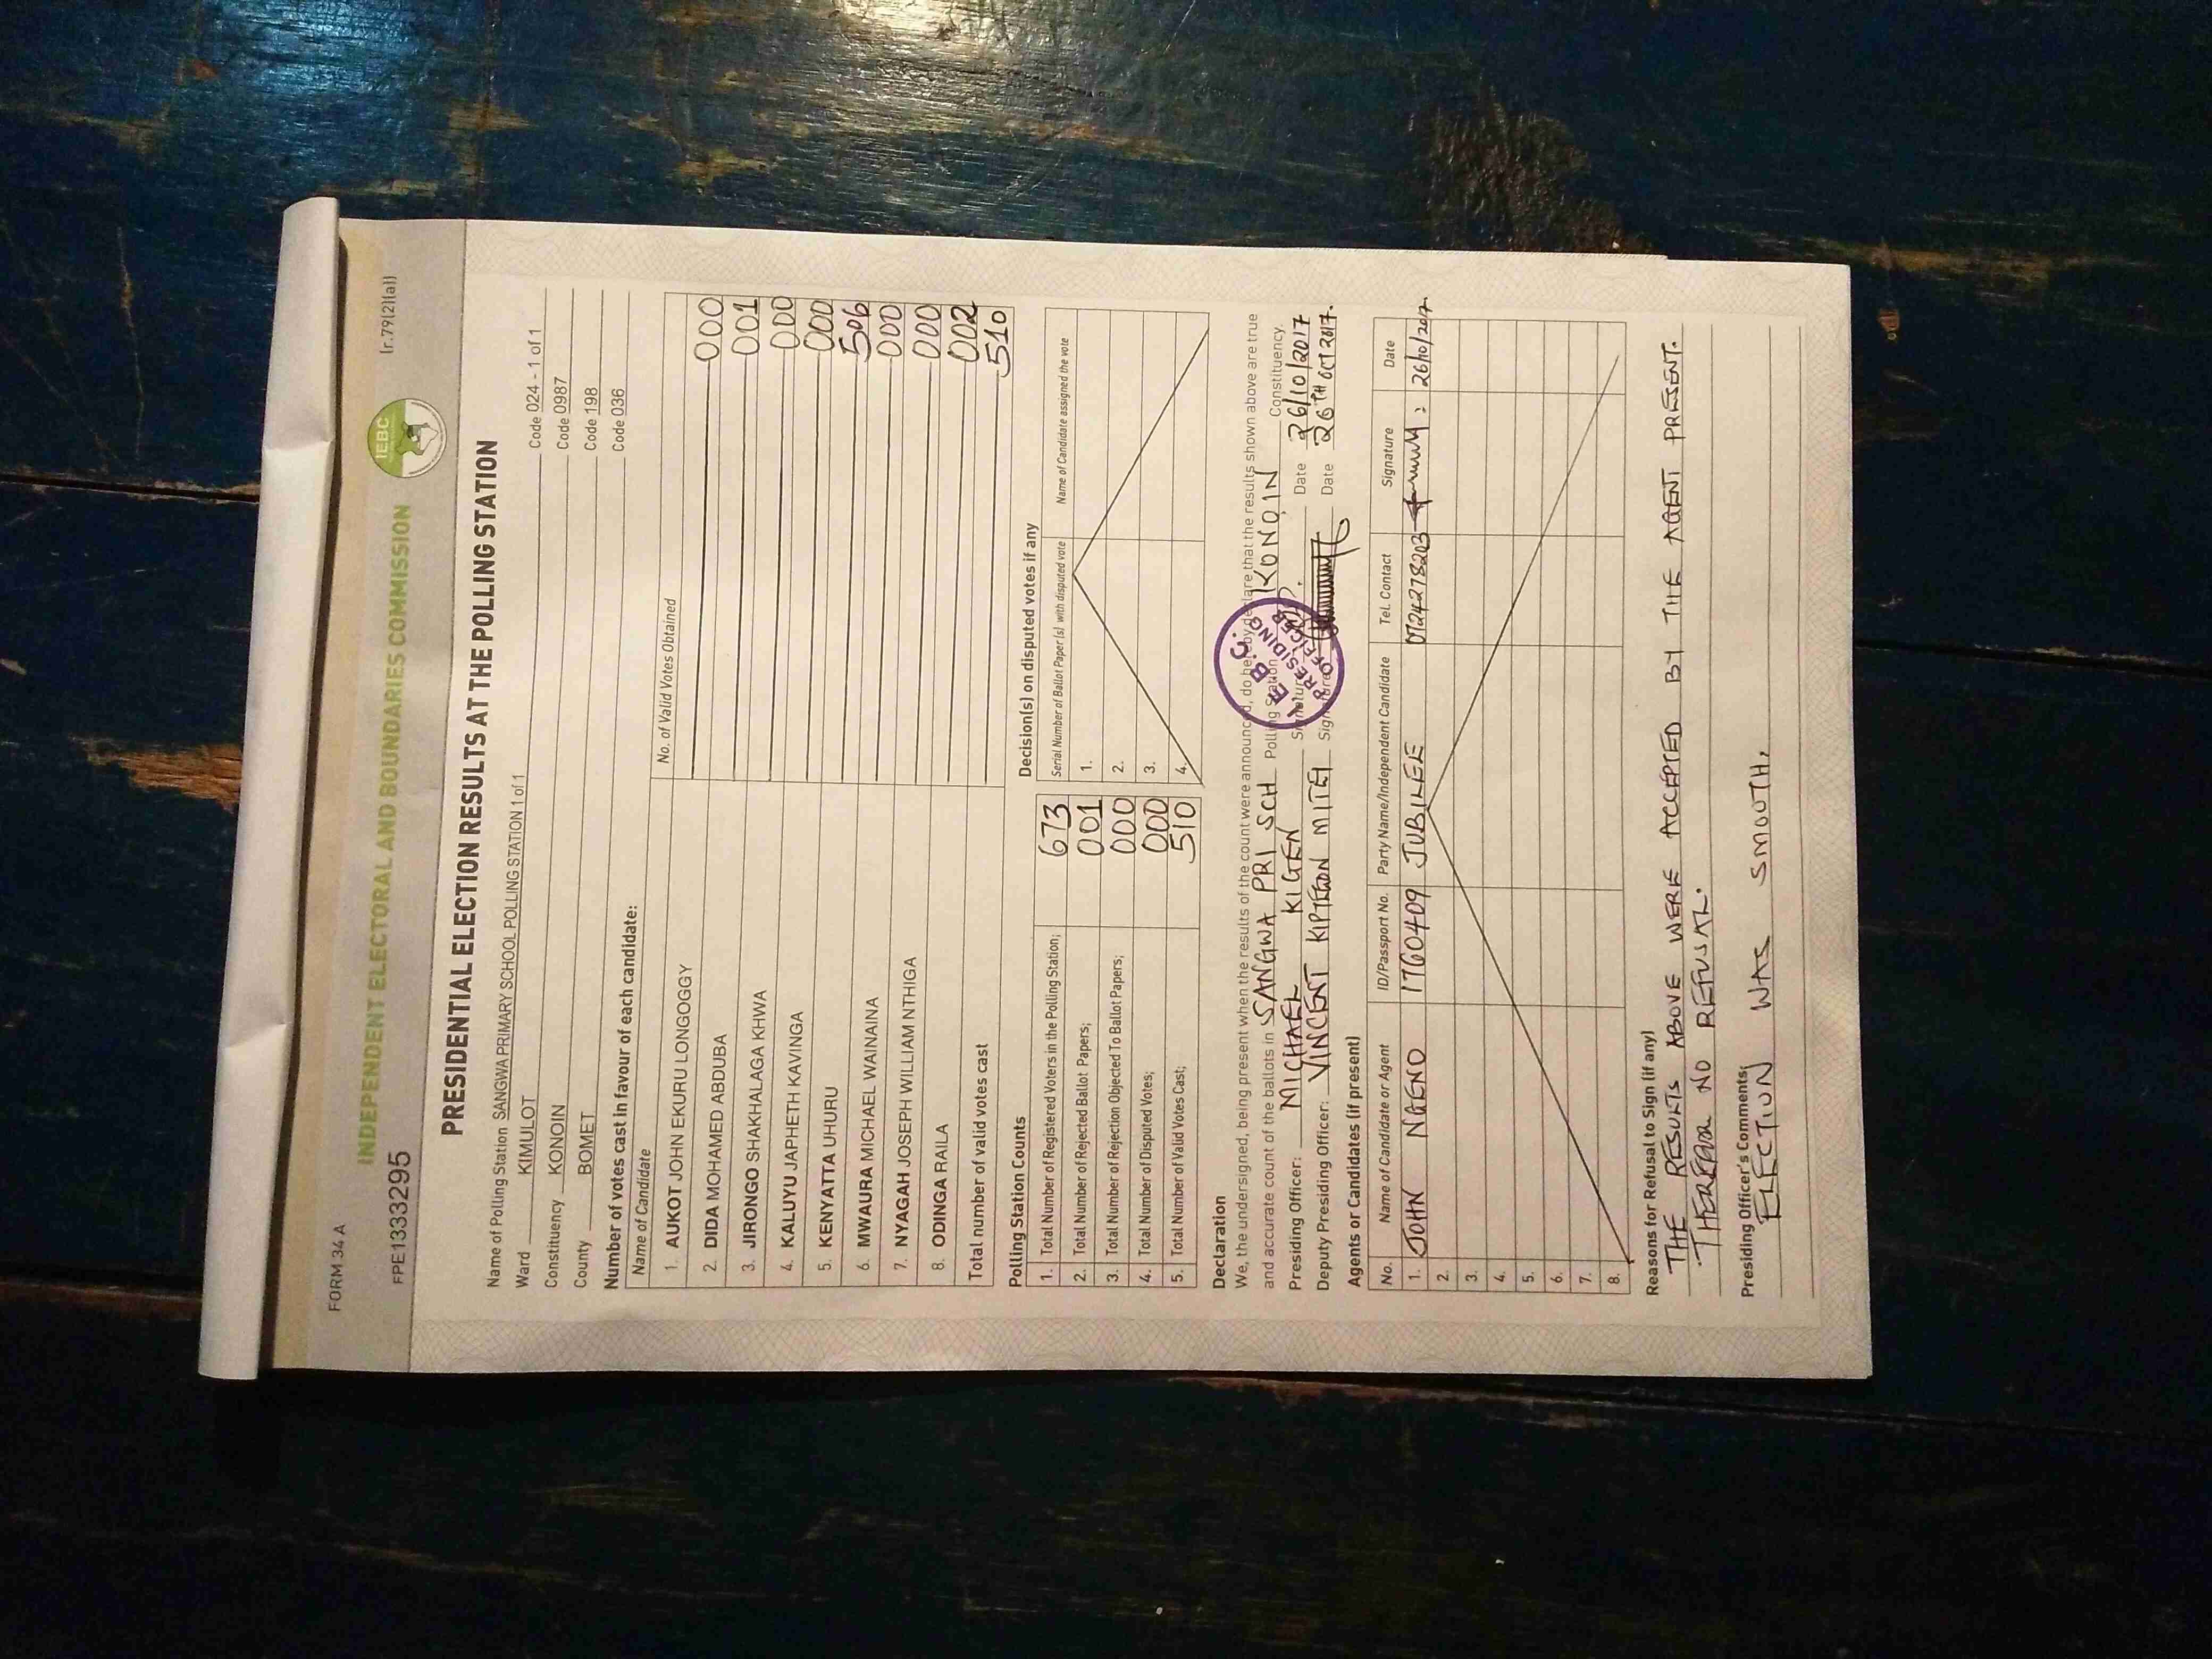 FORM 34 A
(r.79(2)(a))
INDEPENDENT ELECTORAL AND BOUNDARIES COMMISSION
IEBC
FPE1333295
PRESIDENTIAL ELECTION RESULTS AT THE POLLING STATION
Name of Polling Station SANGWA PRIMARY SCHOOL POLLING STATION 1 of 1 Code 024 - 1 of 1
Ward KIMULOT Code 0987
Constituency KONOIN Code 198
County BOMET Code 036
Number of votes cast in favour of each candidate:
Name of Candidate No. of Valid Votes Obtained
1. AUKOT JOHN EKURU LONGOGGY 000
2. DIDA MOHAMED ABDUBA 001
3. JIRONGO SHAKHALAGA KHWA 000
4. KALUYU JAPHETH KAVINGA 000
5. KENYATTA UHURU 506
6. MWAURA MICHAEL WAINAINA 000
7. NYAGAH JOSEPH WILLIAM NTHIGA 000
8. ODINGA RAILA 002
Total number of valid votes cast 510
Polling Station Counts
1. Total Number of Registered Voters in the Polling Station; 673
2. Total Number of Rejected Ballot Papers; 001
3. Total Number of Rejection Objected To Ballot Papers; 000
4. Total Number of Disputed Votes; 000
5. Total Number of Valid Votes Cast; 510
Decision(s) on disputed votes if any
Serial Number of Ballot Paper(s) with disputed vote Name of Candidate assigned the vote
1.
2.
3.
4.
Declaration
We, the undersigned, being present when the results of the count were announced, do hereby declare that the results shown above are true
and accurate count of the ballots in SANGWA PRI SCH Polling Station KONOIN Constituency.
Presiding Officer: MICHAEL KIGEN Signature Date 26/10/2017
Deputy Presiding Officer: VINCENT KIPTEON MITEI Signature Date 26TH OCT 2017.
I.E.B.C.
PRESIDING OFFICER
Agents or Candidates (if present)
No. Name of Candidate or Agent ID/Passport No. Party Name/Independent Candidate Tel. Contact Signature Date
1. JOHN NGENO 11760409 JUBILEE 0724278203 26/10/2017
2.
3.
4.
5.
6.
7.
8.
Reasons for Refusal to Sign (if any)
THE RESULTS ABOVE WERE ACCEPTED BY THE AGENT PRESENT.
NO REFUSAL.
Presiding Officer's Comments;
ELECTION WAS SMOOTH.